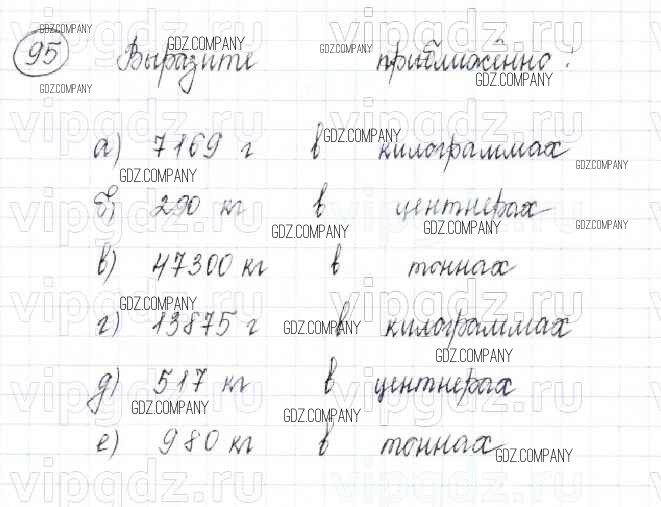 95 Выразите приближённо:
а) 7169 г в килограммах
б) 290 кг в центнерах
в) 47300 кг в тоннах
г) 13875 г в килограммах
д) 517 кг в центнерах
е) 980 кг в тоннах
vipgdz.ru
GDZ.COMPANY